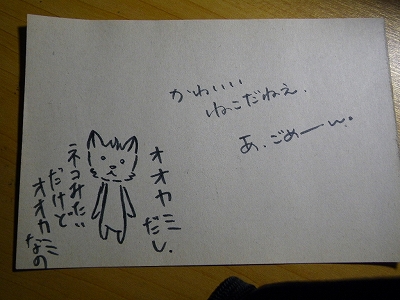 かわいいい
ねこだねぇ.
あ、ごめーん。
オオカミ
だし.
ネコみたい
だけど
オオカミ
なの